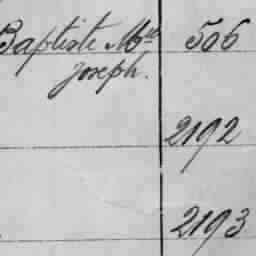 Baptiste Mce 506
Joseph.
2192
2193